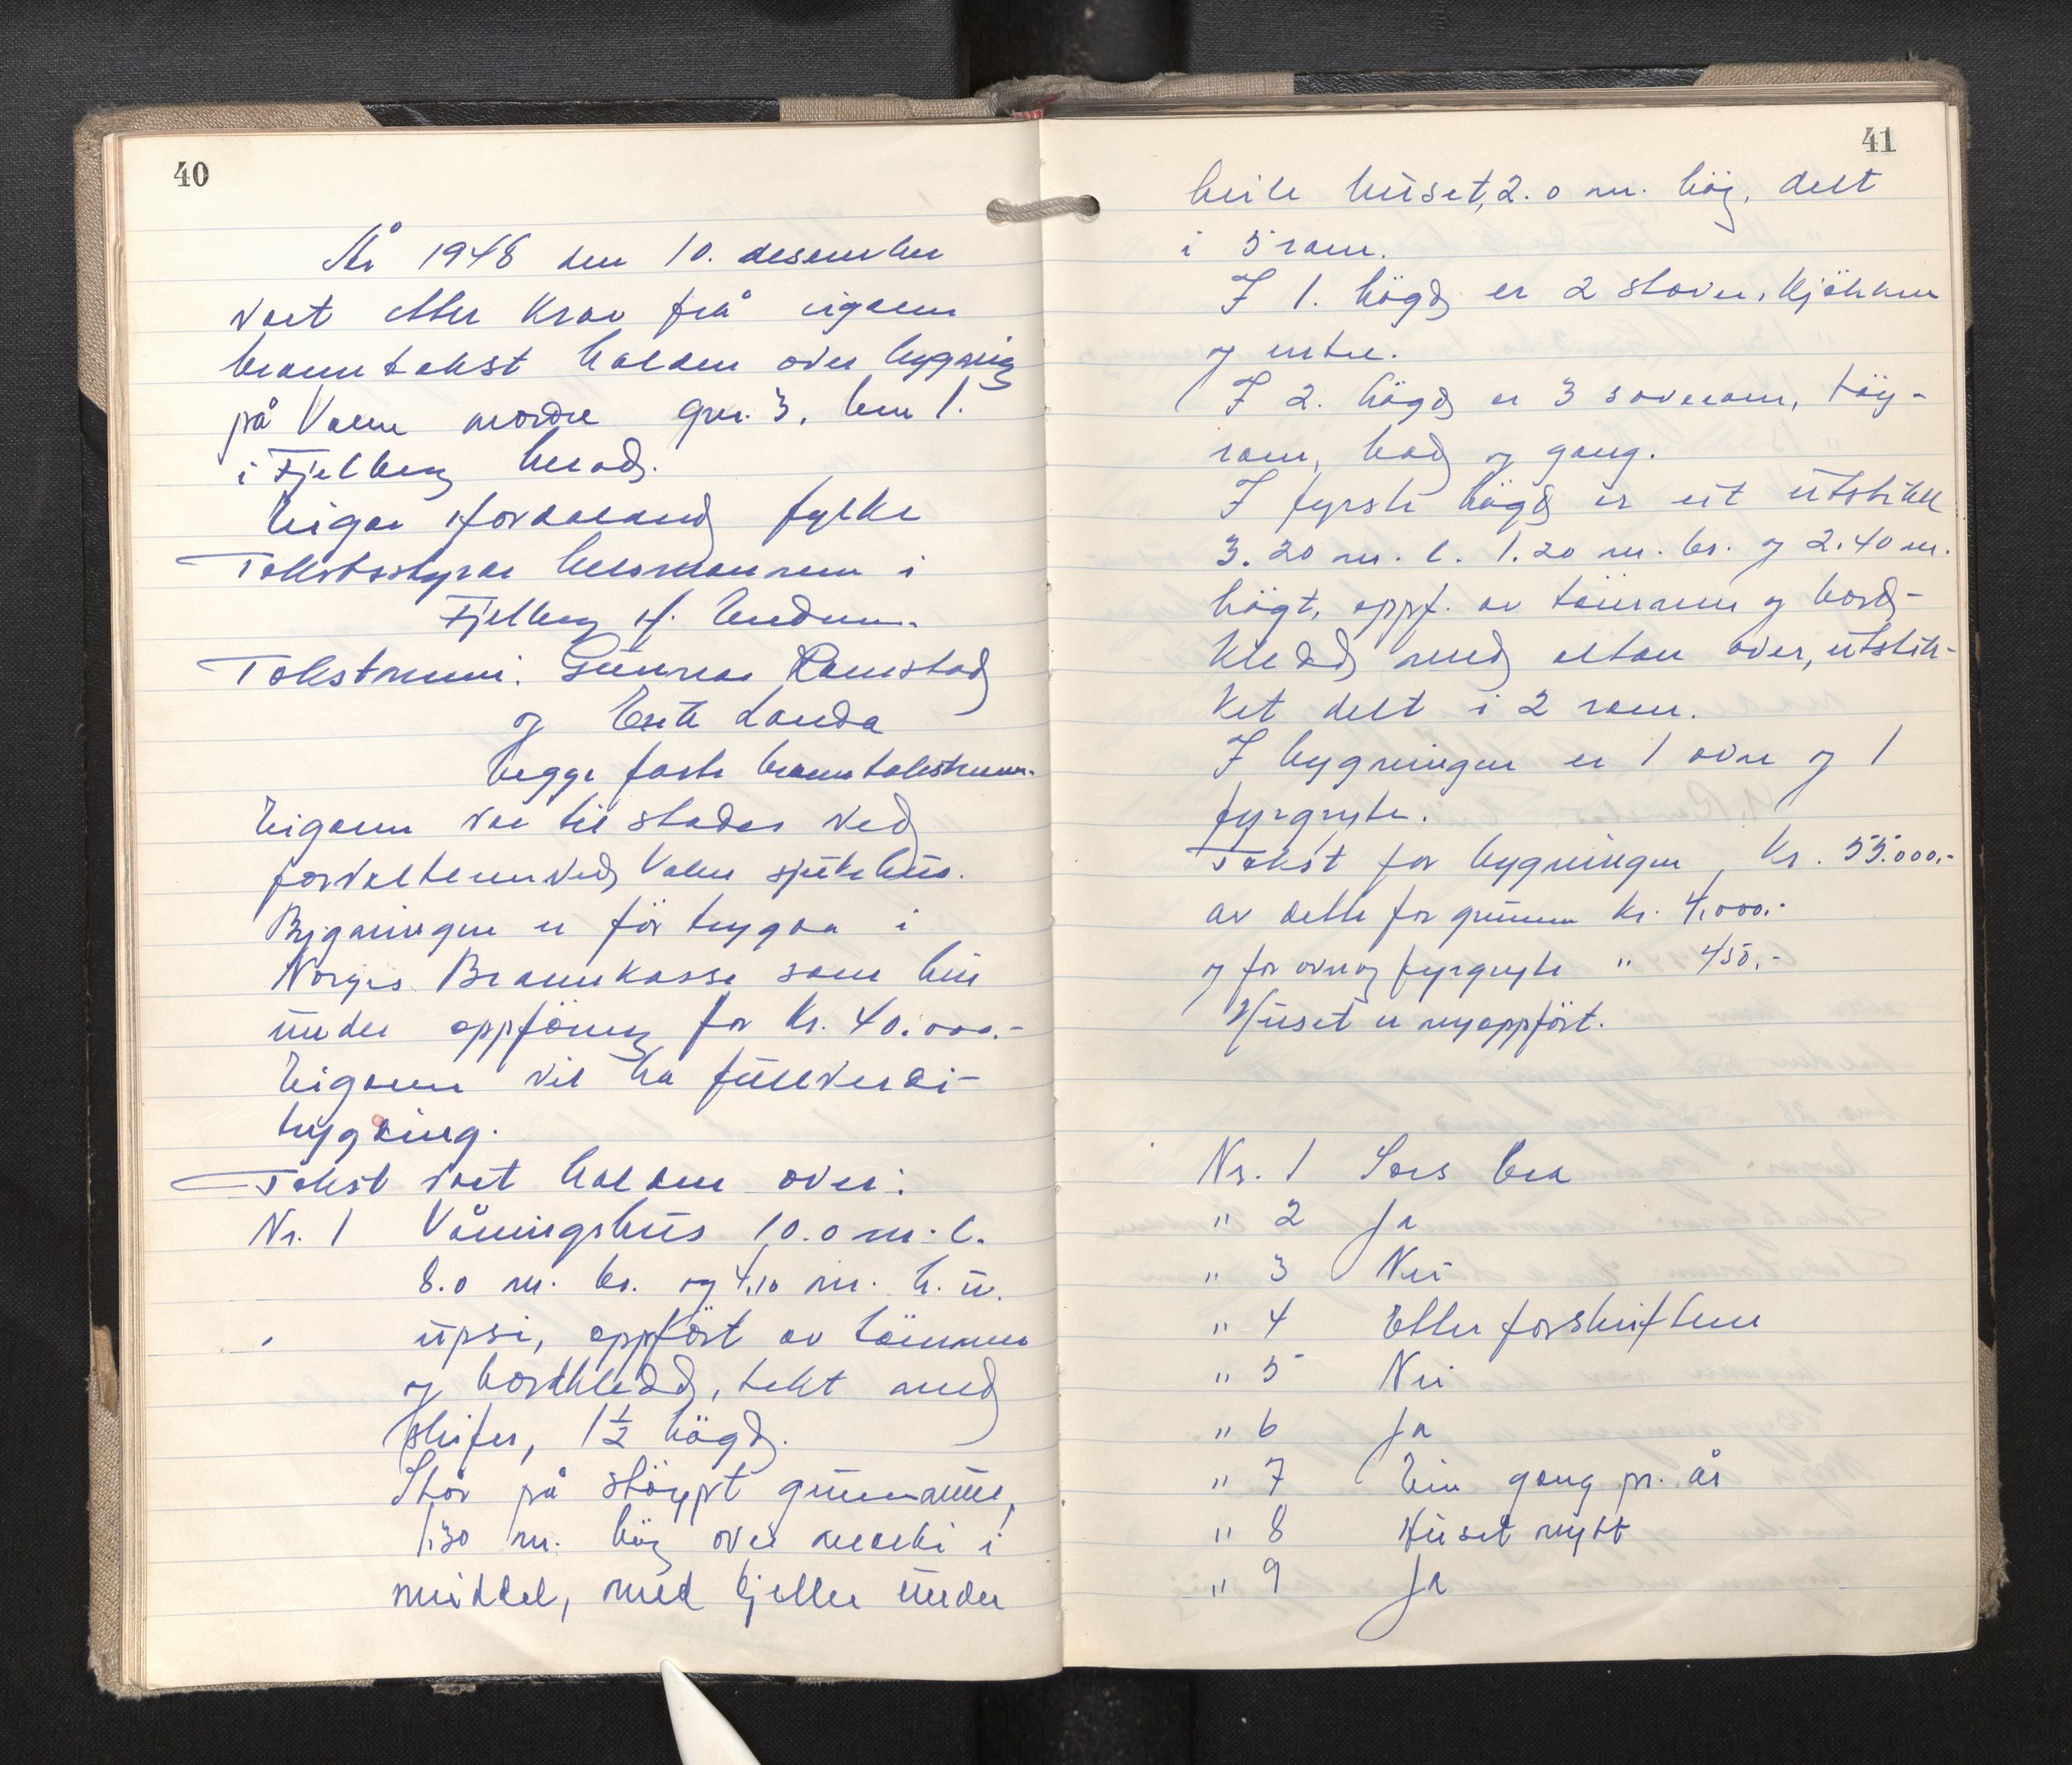 40
År 1948 den 10. desember
vart etter krav frå eigaren
branntakst halden over bygning
på Valen nordre gnr. 3. bnr 1.
i Fjelberg herad.
Eigar Hordaland fylke
Takstsstyrar lensmannen i
Fjelberg H. Enduun.
Takstmenn: Gunnar Ramstad
og Erik Landa
begge faste branntakstmenn.
Eigaren var til stades ved
forvalteren ved Valen sjukehus.
Bygningen er för trygda i
Norges Brannkasse som hus
under oppföring for kr. 40.000.-
Eigaren vil ha fullverdi-
trygding.
Takst vart halden over:
Nr. 1 Våningshus 10.0 m. l.
8.0 m. br. og 4,10 m. h. u.
upsi, oppfört av tömmer
og bordkledd, tekt med
skifer, 1½ högd.
Står på stöypt grunnmur,
1,30 m. hög over marki i
middel, med kjeller under
41
heile huset, 2.0 m. hög, delt
i 5 rom.
I 1. högd er 2 stover, kjökken
og entre.
I 2. högd er 3 soverom, töy-
rom, bad og gang.
I fyrste högd er eit utstikk
3.20 m. l. 1.20 m. br. og 2.40 m.
högt, oppf. av tömmer og bord-
kledd med altan over, utstik-
ket delt i 2 rom.
I bygningen er 1 ovn og 1
fyrgryte.
Takst for bygningen kr. 55.000.-
av dette for grunnen kr. 4.000.-
og for ovn og fyrgryte " 450.-
Huset er nyoppfört.
Nr. 1 Sers bra
" 2 Ja
" 3 Nei
" 4 Etter forskriftene
" 5 Nei
" 6 Ja
" 7 Ein gang pr. år
" 8 Huset nytt
" 9 Ja